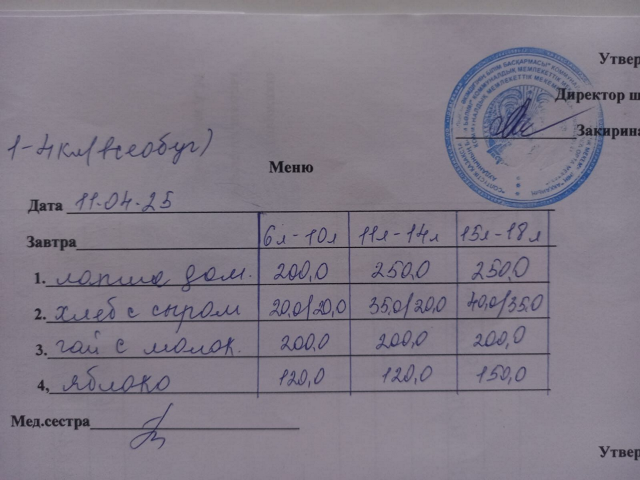 Утвер
Директор ш
Закирина
1-4 кл (всеобуч)
Меню
Дата 11.04.25
Завтра 6л-10л 11л-14л 15л-18л
1. лапша дом. 200,0 250,0 250,0
2. хлеб с сыром 20,0/20,0 35,0/20,0 40,0/35,0
3. чай с молок. 200,0 200,0 200,0
4, яблоко 120,0 120,0 150,0
Мед.сестра
Утвер